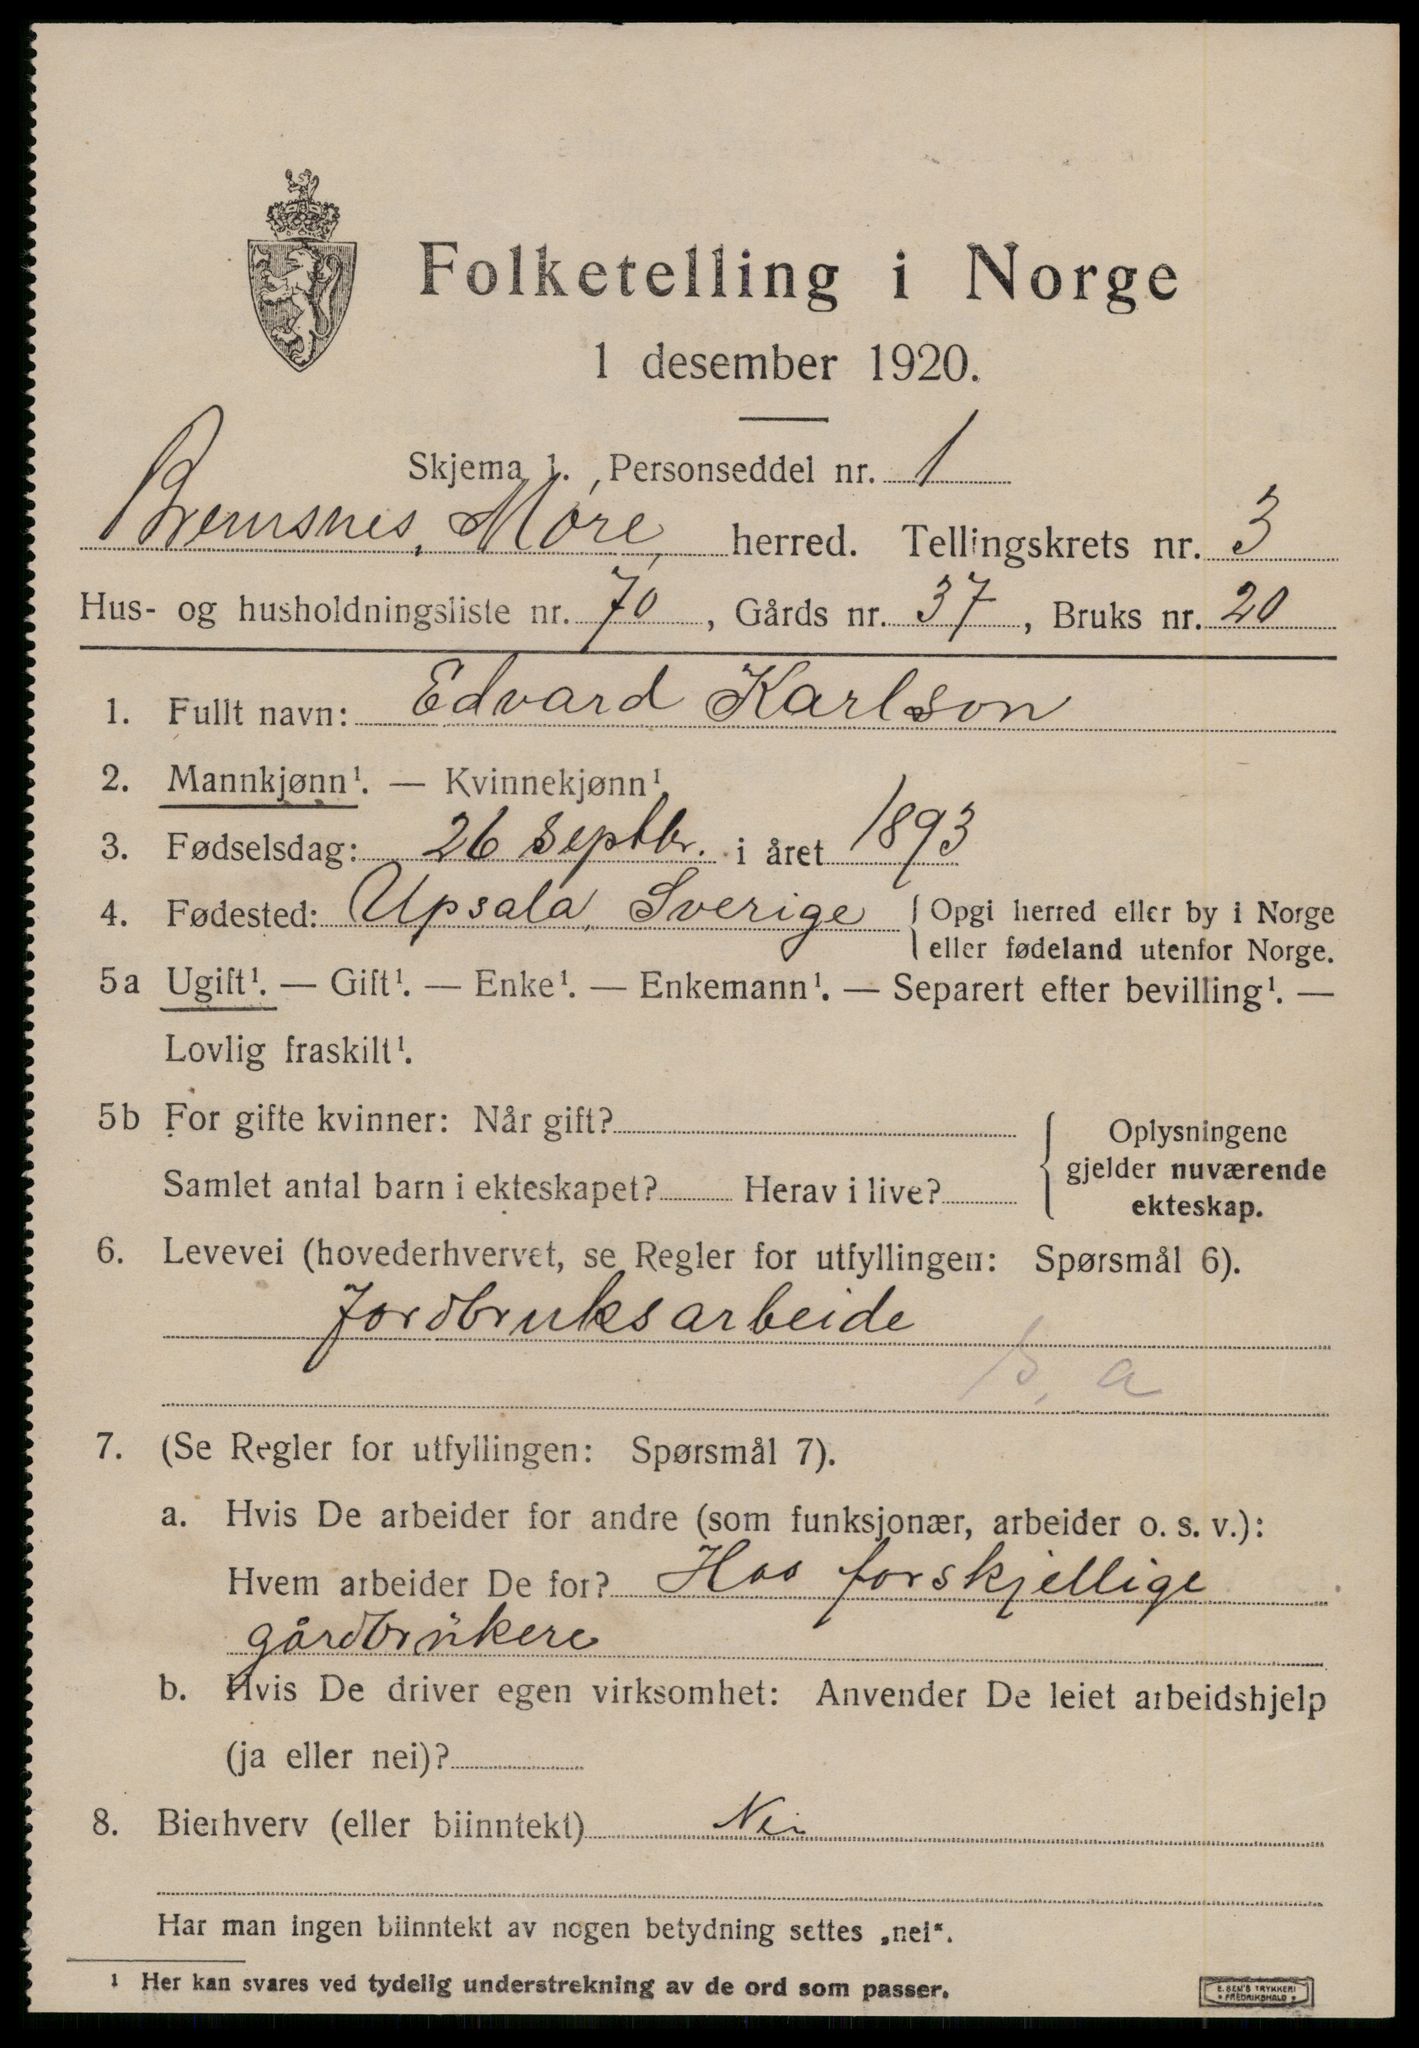 Folketelling i Norge
1 desember 1920.
Skjema 1. Personseddel nr. 1
Bremsnes, Møre, herred. Tellingskrets nr. 3
Hus- og husholdningsliste nr. 70, Gårds nr. 37, Bruks nr. 20
1. Fullt navn: Edvard Karlson
2. Mannkjønn¹. — Kvinnekjønn¹.
3. Fødselsdag: 26 septbr. i året 1893
4. Fødested: Upsala, Sverige { Opgi herred eller by i Norge
eller fødeland utenfor Norge.
5a Ugift¹. — Gift¹. — Enke¹. — Enkemann¹. — Separert efter bevilling¹. —
Lovlig fraskilt¹.
5b For gifte kvinner: Når gift?
Samlet antal barn i ekteskapet? Herav i live?
Oplysningene
gjelder nuværende
ekteskap.
6. Levevei (hovederhvervet, se Regler for utfyllingen: Spørsmål 6).
Jordbruksarbeide
a
7. (Se Regler for utfyllingen: Spørsmål 7).
a. Hvis De arbeider for andre (som funksjonær, arbeider o. s. v.):
Hvem arbeider De for? Hos forskjellige
gårdbrukere
b. Hvis De driver egen virksomhet: Anvender De leiet arbeidshjelp
(ja eller nei)?
8. Bierhverv (eller biinntekt) Nei
Har man ingen biinntekt av nogen betydning settes „nei“.
¹ Her kan svares ved tydelig understrekning av de ord som passer.
E. SEM'S TRYKKERI
FREDRIKSHALD